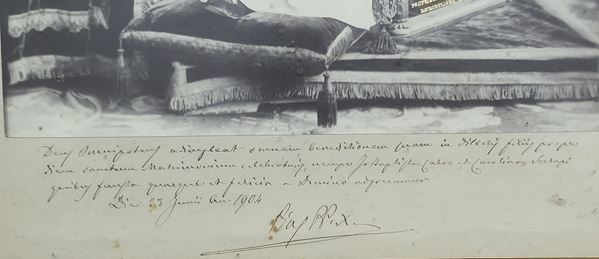 PROPRI
RIPRODUZI
Deus Omnipotens adimpleat omnem benedictionem suam in dilectis filiis prope
diem sanctum Matrimonium celebraturis, nempe Jo. Baptista et Carolina
quibus fausta quaeque et felicia a Domino adprecamur
Die 23 Junii An. 1904
Pius PP. X